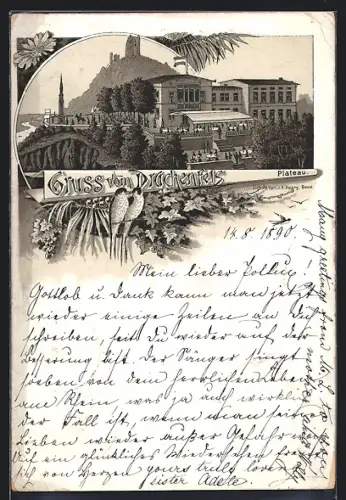 Gruss vom Drachenfels
Plateau.
14.8.1890.
Mein lieber Pollux!
Gottlob u. Dank kann man jetzt
wieder einige Zeilen an Dich
schreiben, seit Du wieder auf der
Besserung bist. Der Sänger singt
soeben von dem herrlichen Leben
am Rhein, was ja auch wirklich
der Fall ist, wenn man seine
Lieben wieder außer Gefahr
Auf ein glückliches Wiedersehen freut
sich von Herzen yours truly
sister
Many greetings from